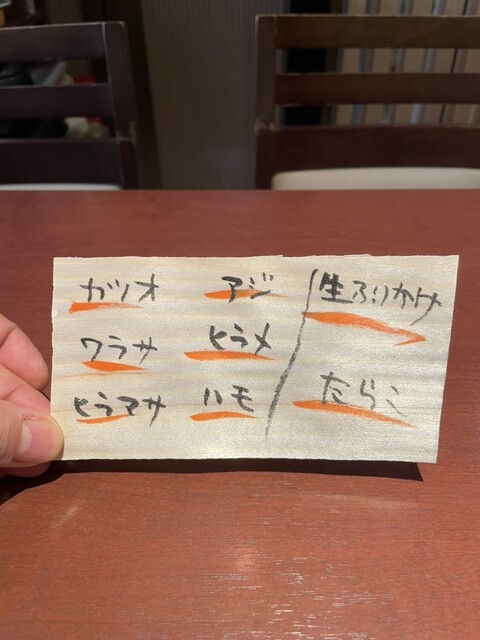 カツオ
ワラサ
ヒラマサ
アジ
ヒラメ
ハモ
生ふりかけ
たらこ